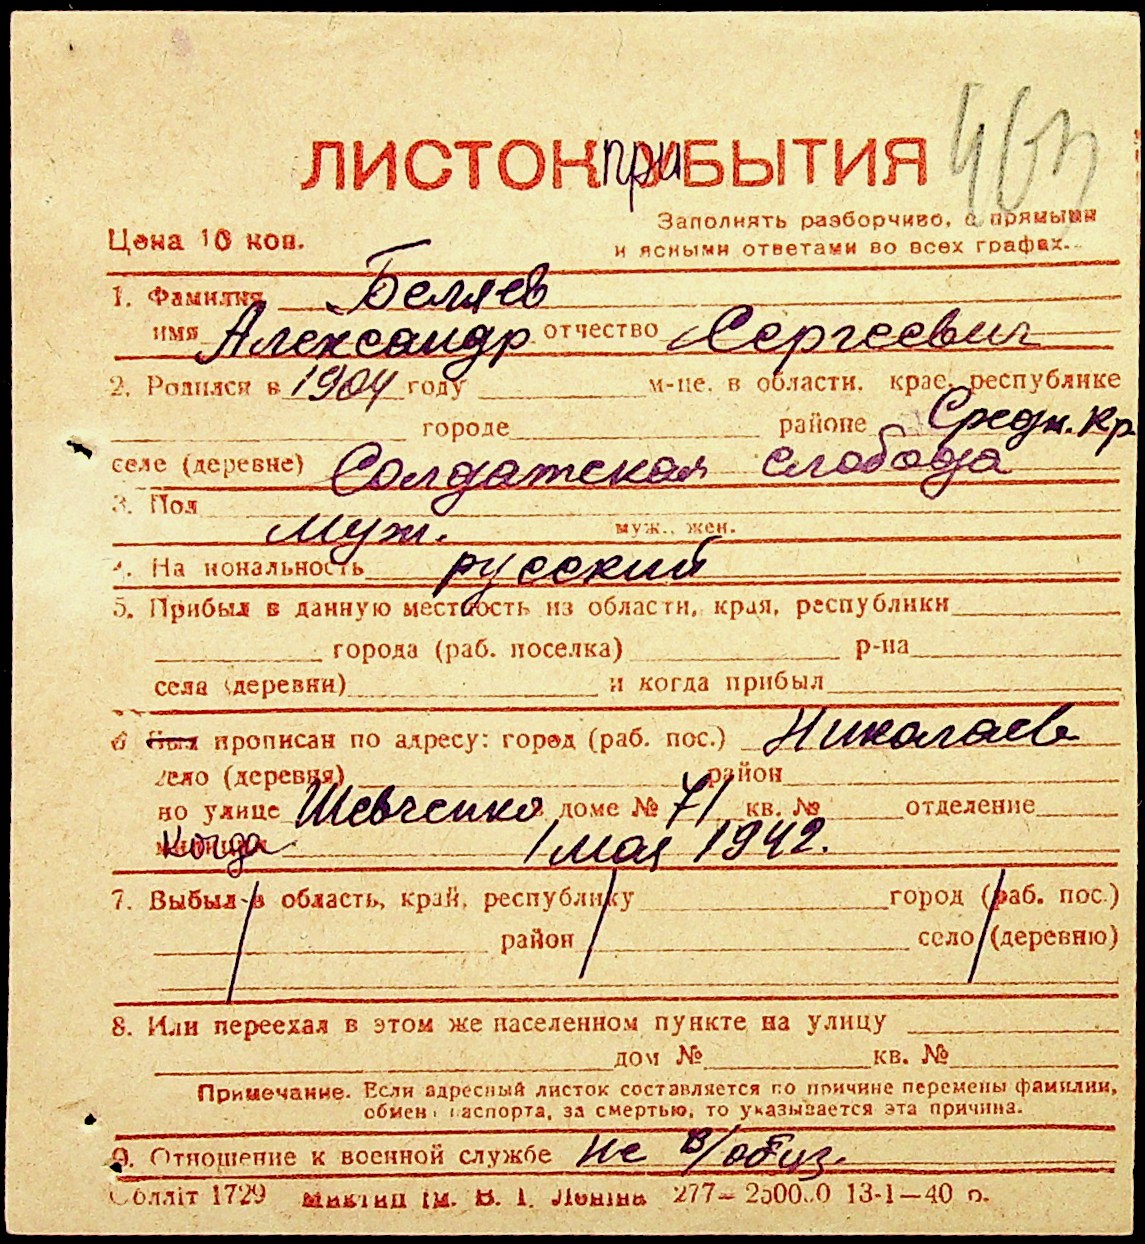 463
ЛИСТОК ПРИБЫТИЯ
Цена 10 коп.
Заполнять разборчиво, с прямыми
и ясными ответами во всех графах.
1. Фамилия Беляев
имя Александр отчество Сергеевич
2. Родился в 1904 году м-це, в области, крае, республике
городе районе Средн. Кр.
селе (деревне) Солдатская слобода
3. Пол
муж. муж., жен.
4. Национальность русский
5. Прибыл в данную местность из области, края, республики
города (раб. поселка) р-на
села (деревни) и когда прибыл
6 Был прописан по адресу: город (раб. пос.) Николаев
село (деревня) район
по улице Шевченко в доме № 71 кв. № отделение
когда 1 мая 1942.
7. Выбыл в область, край, республику город (раб. пос.)
район село (деревню)
8. Или переехал в этом же населенном пункте на улицу
дом № кв. №
Примечание. Если адресный листок составляется по причине перемены фамилии,
обмен паспорта, за смертью, то указывается эта причина.
9. Отношение к военной службе не в/обяз.
Облліт 1729 ім. В. І. Леніна 277— 13-1—40 р.